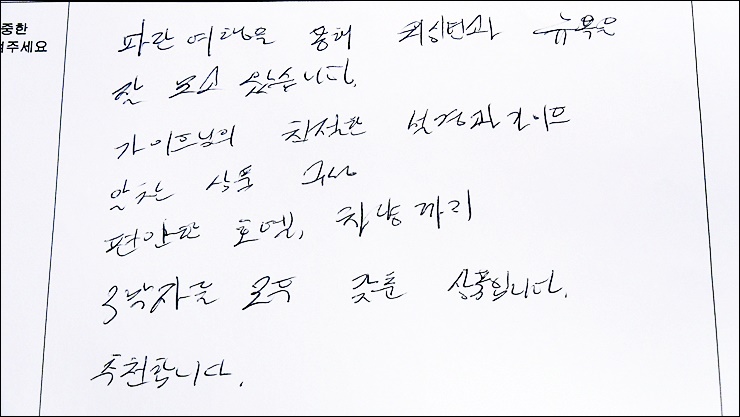 중한
겨주세요
파란여행을 통해 워싱턴과 뉴욕을
잘 보고 왔습니다.
가이드님의 친절한 설명과 가이드
알찬 상품 구성
편안한 호텔, 차량까지
3박자를 모두 갖춘 상품입니다.
추천합니다.